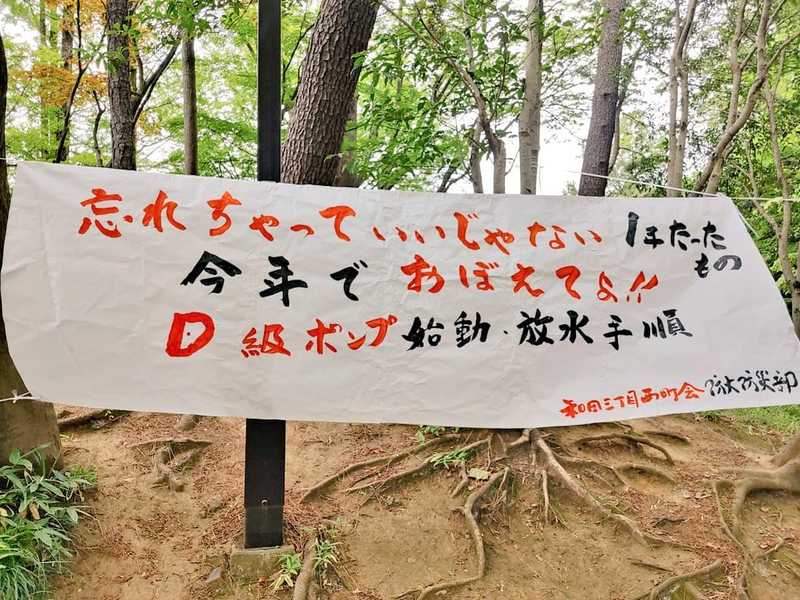 忘れちゃっていいじゃない 1年たった
もの
今年で おぼえてよ!!
D級ポンプ 始動・放水手順
和田三丁目西町会 防火防災部